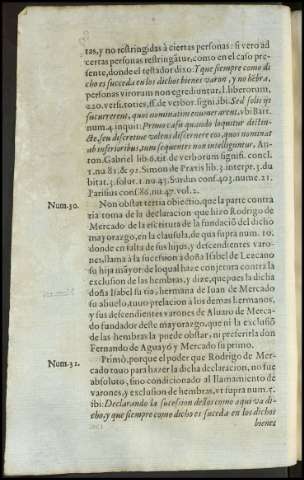 tas, y no restringidas à ciertas personas: si vero ad
certas personas restringãtur, como en el caso pre-
sente, donde el testador dixo: Y que siempre como di
cho es succeda en los dichos bienes varon, y no hẽbra,
personas virorum non egrediuntur, l. liberorum,
220. vers. toties, ff. de verbor. signi. ibi. Sed solis ijs
succurrerent, quos nominatim enumerarent, vbi Bart.
num. 4. inquit: Primo casu quando loquitur distin-
cte, seu discretiue volens discernere eos, quos nominat
ab inferioribus, tunc sequentes non intelliguntur, An-
ton. Gabriel lib. 6. tit. de verborum signifi. concl.
1. nu. 81. & 91. Simon de Prætis lib. 3. interpr. 3. du
bitat. 3. solut. 1. nu. 45. Surdus conf. 403. nume. 21.
Parisius conf. 86. nu. 47. vol. 2.
Num. 30. No obstat tertia obiectio, que la parte contra
ria toma de la declaracion que hizo Rodrigo de
Mercado de la escritura de la fundaciõ del dicho
mayorazgo, en la clausula, de qua supra num. 10.
donde en falta de sus hijos, y descendientes varo-
nes, llama à la sucession a doña Isabel de Lezcano
su hija mayor: de lo qual haze conjetura contra la
exclusion de las hembras, y dize, que pues la dicha
doña Isabel su tia, hermana de Iuan de Mercado
su abuelo, tuuo prelacion à los demas hermanos,
y sus descendientes varones de Aluaro de Merca-
do fundador deste mayorazgo, que ni la exclusiõ
de las hembras la puede obstar, ni preferirla don
Fernando de Aguayo y Mercado su primo.
Num. 31. Primò, porque el poder que Rodrigo de Mer-
cado tuuo para hazer la dicha declaracion, no fue
absoluto, sino condicionado al llamamiento de
varones, y exclusion de hembras, vt supra num. 5.
ibi: Declarando la sucession dellos como aqui va di-
cho, y que siempre como dicho es suceda en los dichos
bienes